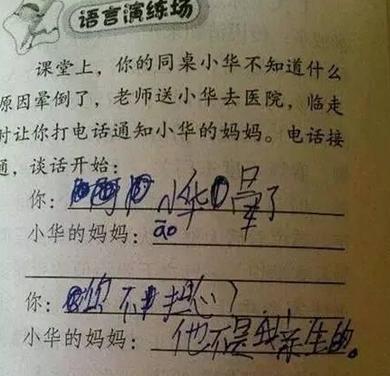 语言演练场
课堂上，你的同桌小华不知道什么
原因晕倒了，老师送小华去医院，临走
时让你打电话通知小华的妈妈。电话接
通，谈话开始：
你：阿 小华 晕了
小华的妈妈：āo
你：你不担心？
小华的妈妈：他不是我亲生的。